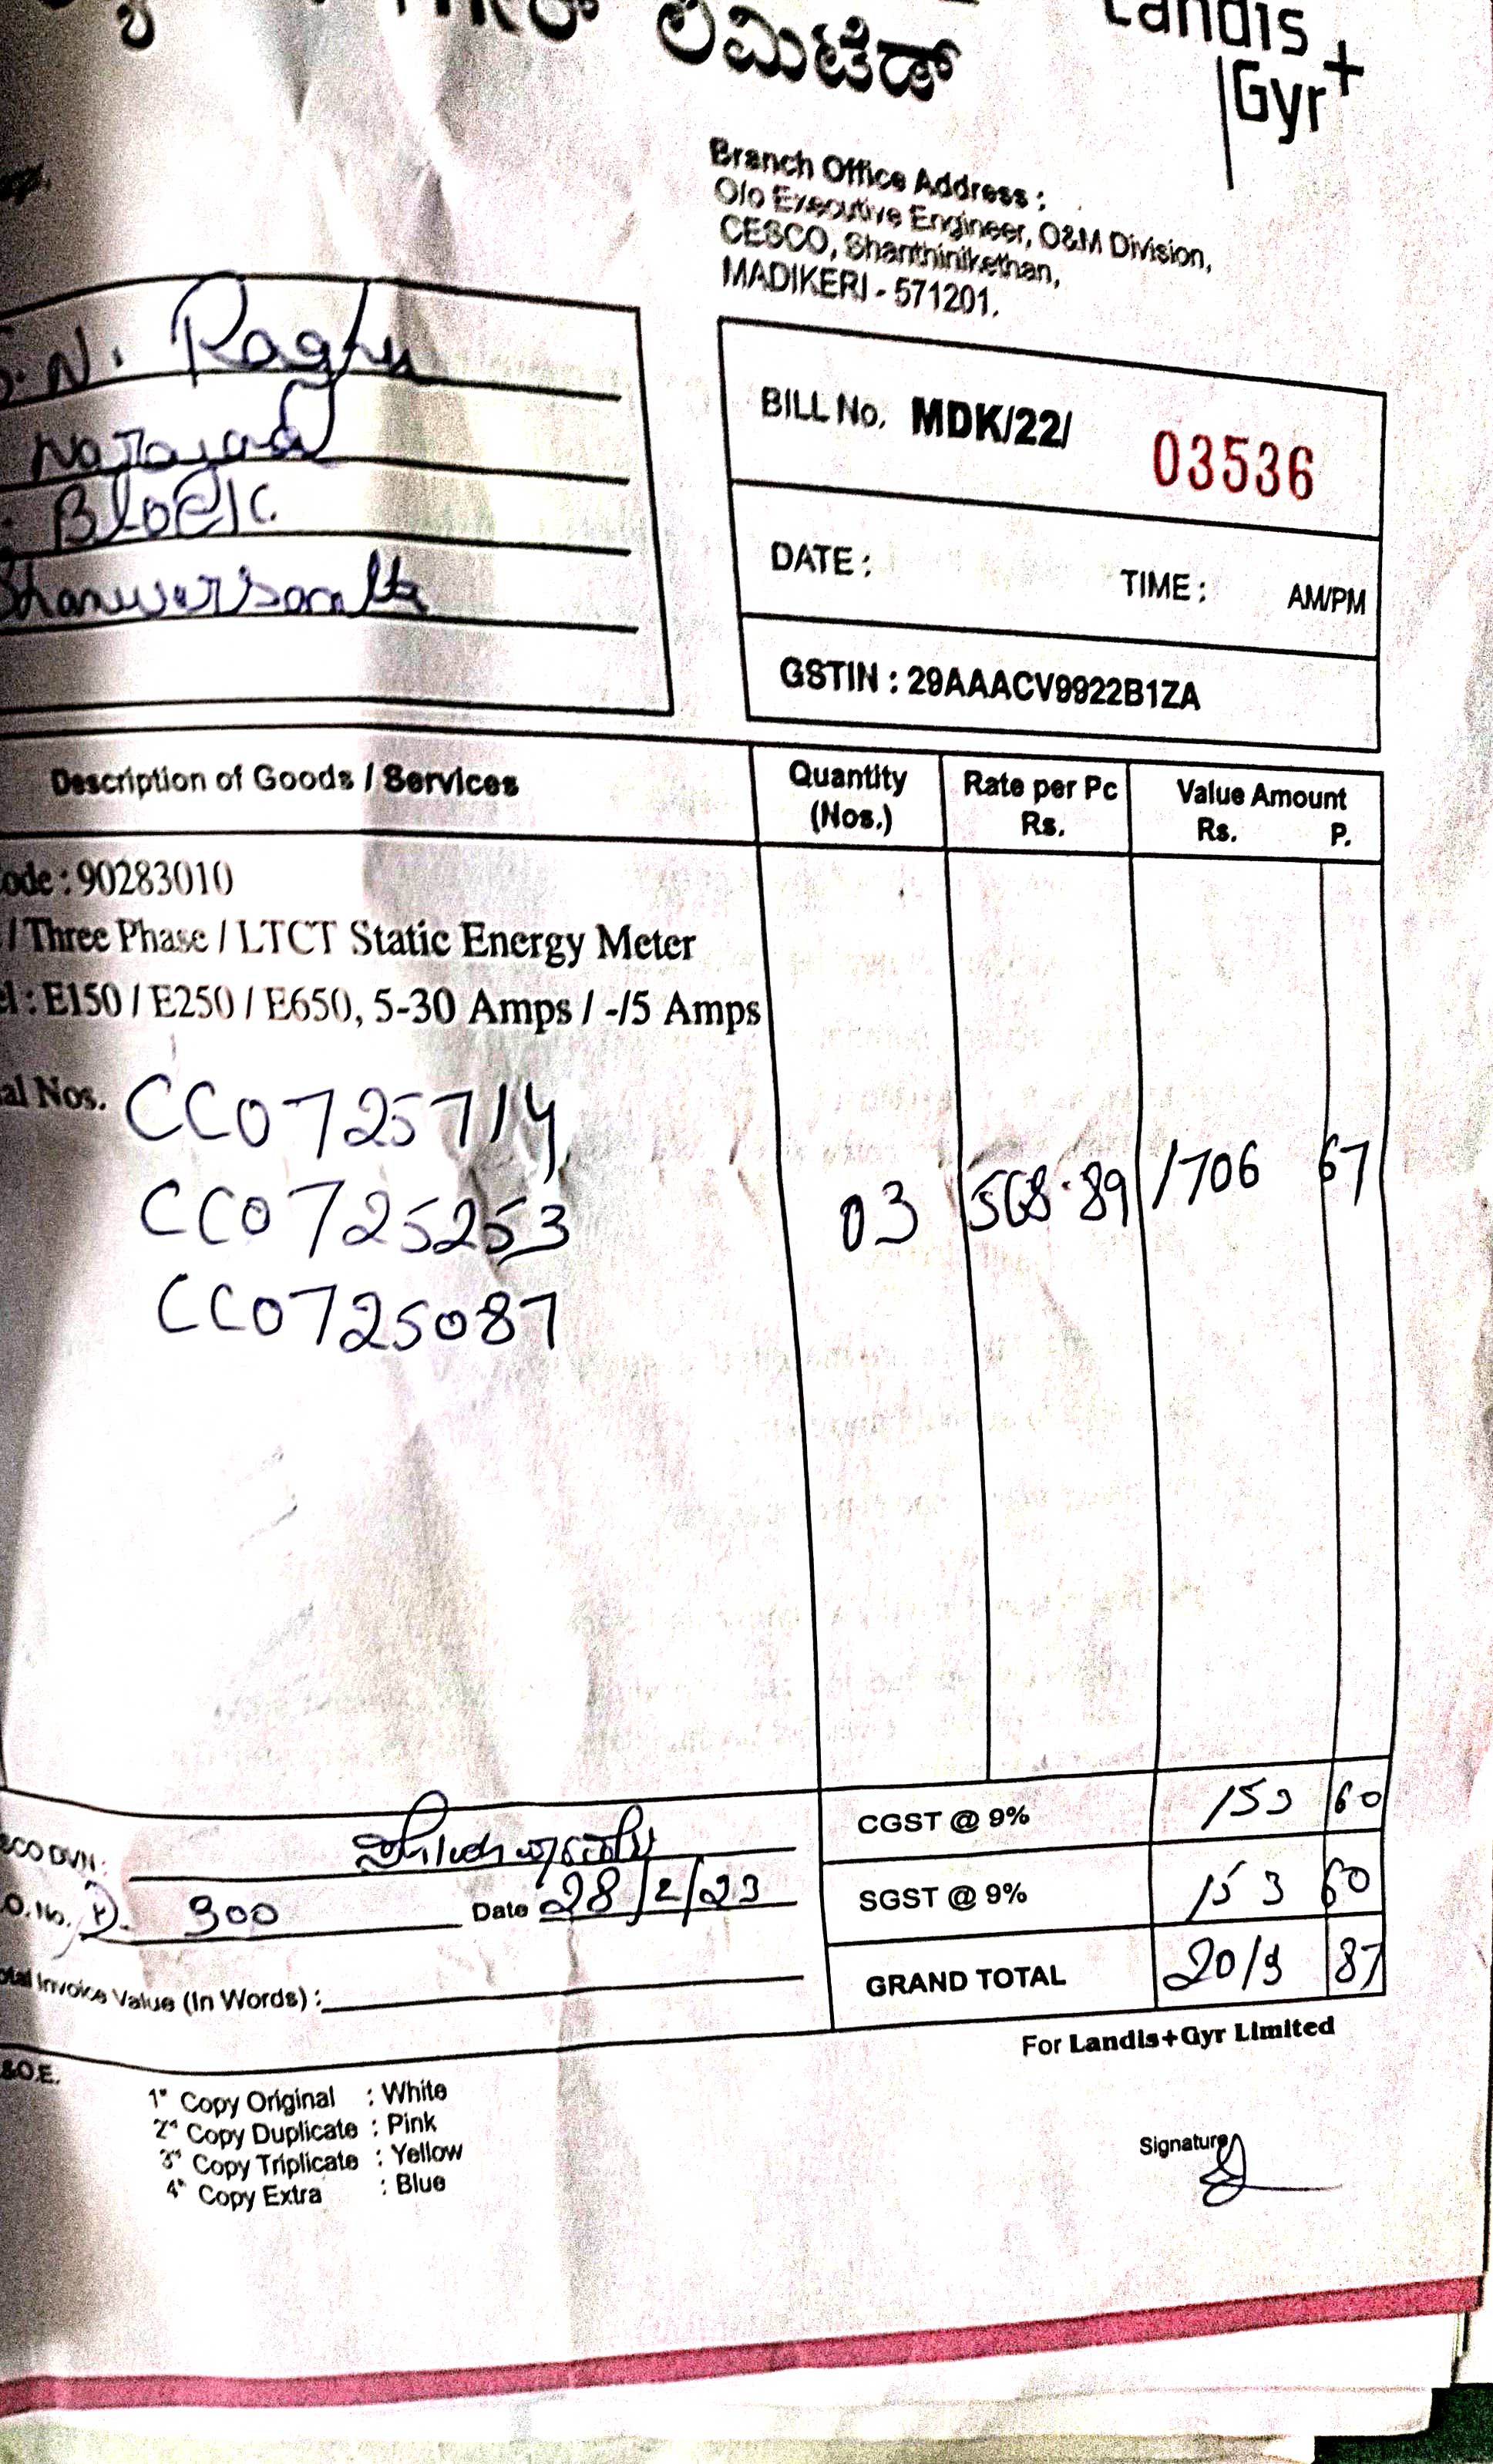 ಲಿಮಿಟೆಡ್
Landis
Gyr+
Branch Office Address :
O/o Executive Engineer, O&M Division,
CESCO, Shanthinikethan,
MADIKERI - 571201.
N. Raghu
Block
BILL No. MDK/22/ 03536
DATE : TIME : AM/PM
GSTIN : 29AAACV9922B1ZA
Description of Goods / Services Quantity (Nos.) Rate per Pc Rs. Value Amount Rs. P.
ode : 90283010
/ Three Phase / LTCT Static Energy Meter
el : E150 / E250 / E650, 5-30 Amps / -/5 Amps
al Nos. CC0725714
CC0725253 03 568.89 1706 67
CC0725087
CGST @ 9% 153 60
SCO DVN:
SGST @ 9% 153 60
.O. No. 300 Date 28/2/23
GRAND TOTAL 2013 87
otal Invoice Value (In Words) :
For Landis+Gyr Limited
&O.E.
1st Copy Original : White
2nd Copy Duplicate : Pink
3rd Copy Triplicate : Yellow
4th Copy Extra : Blue
Signature